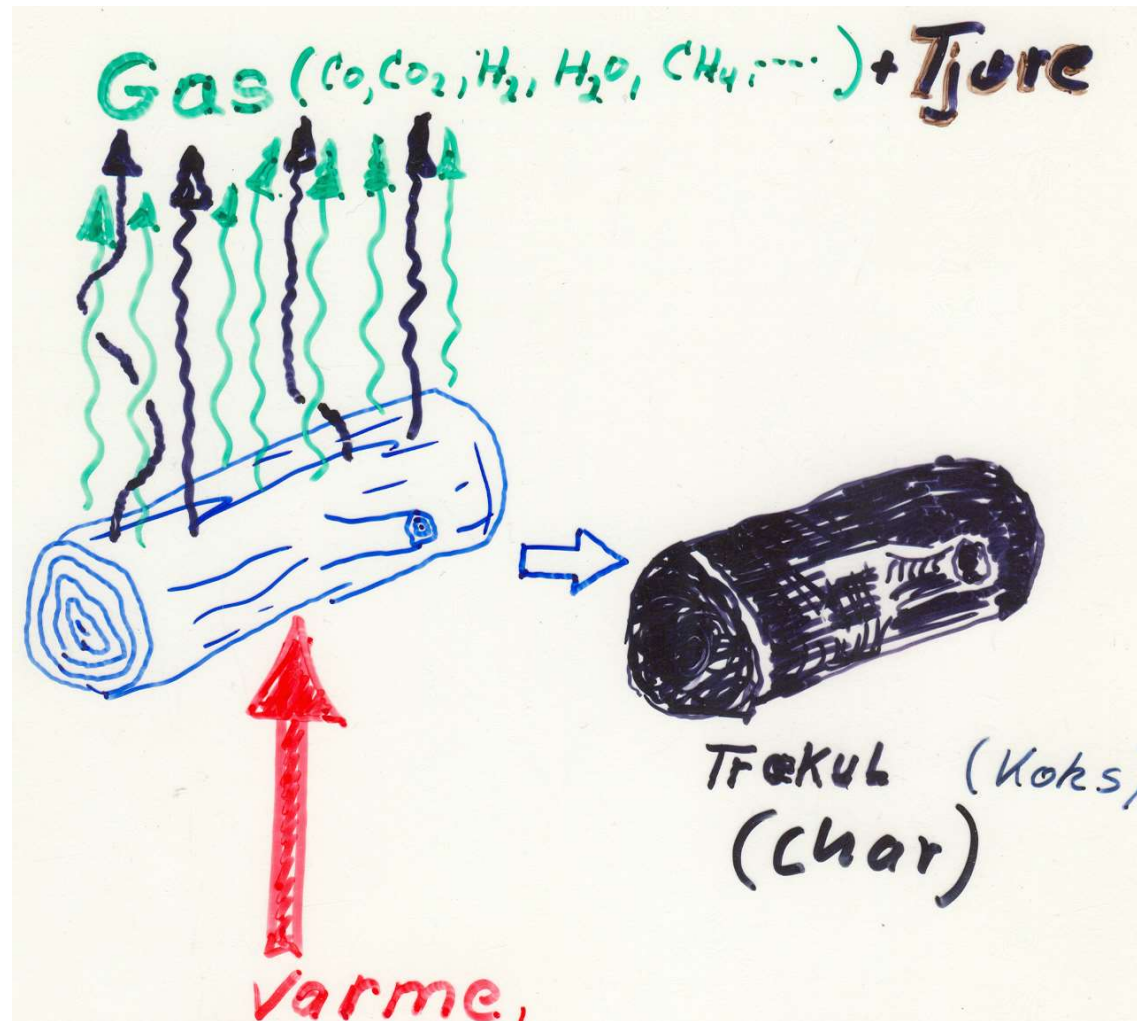 Gas (CO, CO2, H2, H2O, CH4, ....) + Tjære
Trækul (Koks,
(Char)
Varme,